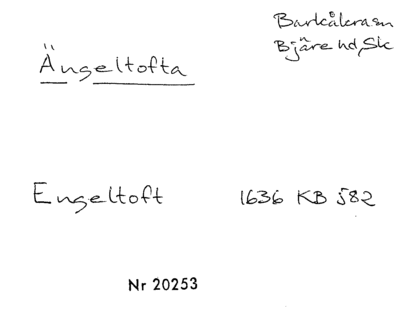 Ängeltofta
Barkåkra sn
Bjäre hd, Sk
Engeltoft 1636 KB 582
Nr 20253